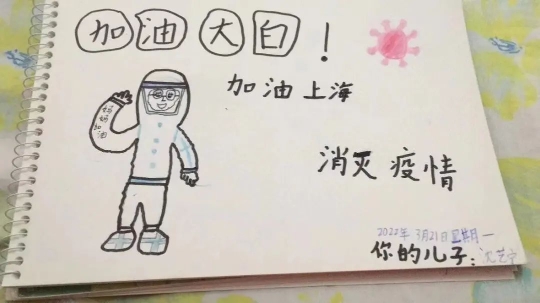 加油大白！
加油上海
妈妈
加油
消灭疫情
2022年3月21日星期一
你的儿子：